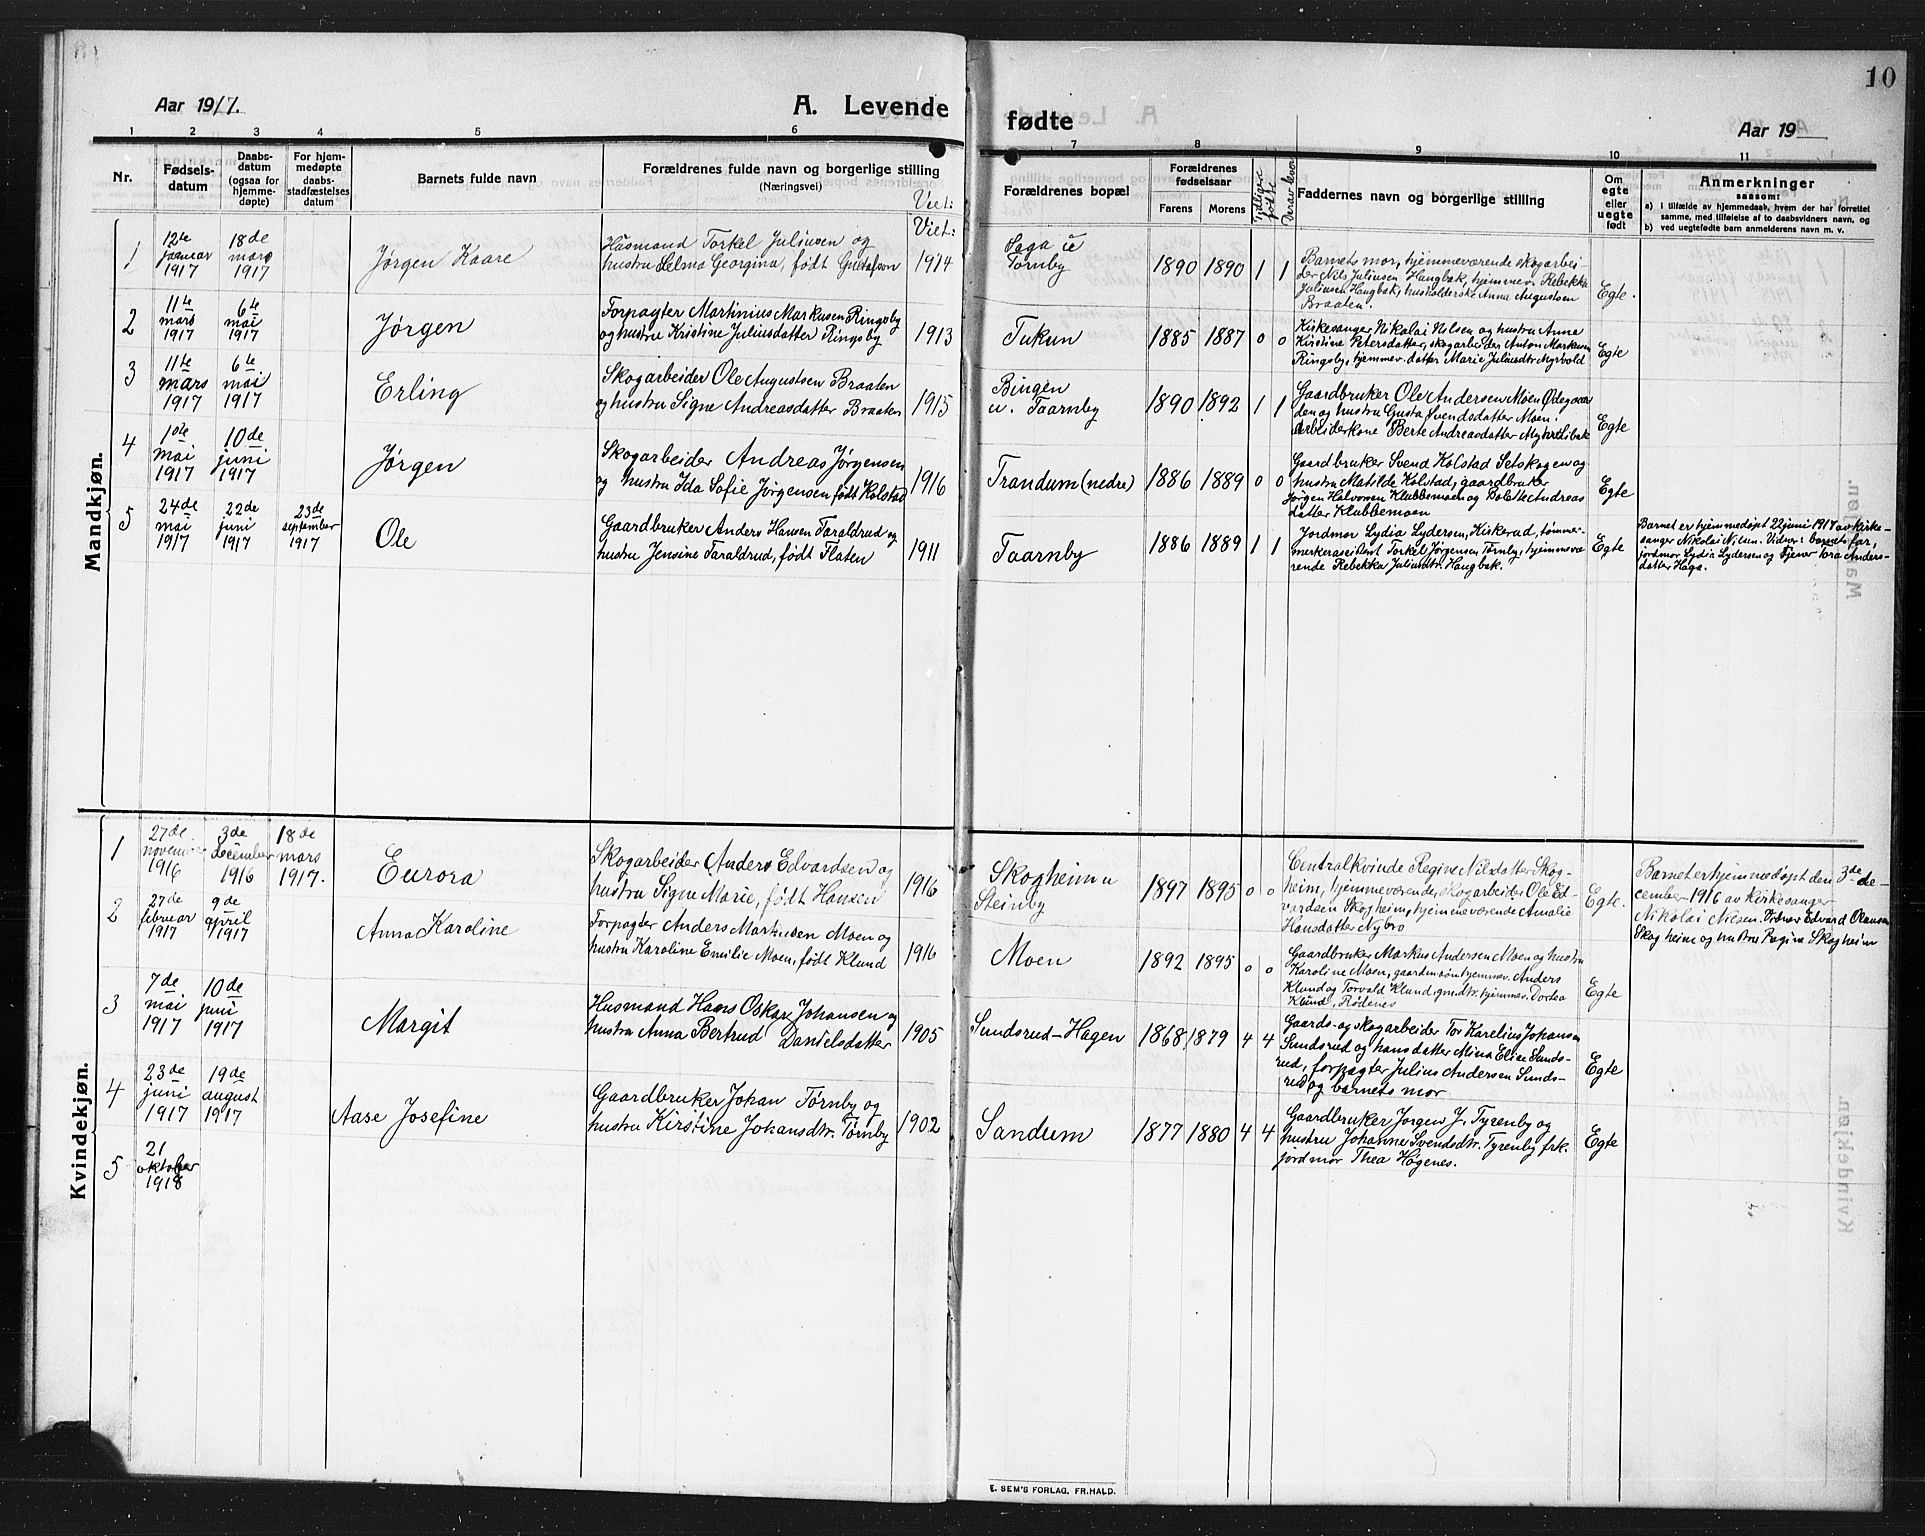 10
Aar 1917.
A. Levende
fødte
Aar 19
1 2 3 4 5 6 7 8 9 10 11
Nr.
Fødsels-
datum
Daabs-
datum
(ogsaa for
hjemme-
døpte)
For hjem-
medøpte
daabs-
stadfæstelses
datum
Barnets fulde navn
Forældrenes fulde navn og borgerlige stilling
(Næringsvei)
Viet:
Viet:
Forældrenes bopæl
Forældrenes
fødselsaar
Farens Morens
Tidligere
fødte
Derav lever
Faddernes navn og borgerlige stilling
Om
egte
eller
uegte
født
Anmerkninger
saasom:
a) i tilfælde av hjemmedaab, hvem der har forrettet
samme, med tilføielse av to daabsvidners navn, og
b) ved uegtefødte barn anmelderens navn m. v.
Mandkjøn.
1
12te
januar
1917
18de
mars
1917
Jørgen Kaare
Husmand Torkel Juliusen og
hustru Selma Georgina, født Gustafson
1914
Saga u
Tørnby
1890 1890 1 1
Barnets mor, hjemmeværende skogarbei-
der Nils Juliusen Haugbak, hjemmev. Rebekka
Juliusen Haugbak, husholderske Anna Augustsen
Braaten.
Egte.
2
11te
mars
1917
6te
mai
1917
Jørgen
Forpagter Martinius Markusen Ringsby
og hustru Kristine Juliusdatter Ringsby
1913
Tukun
1885 1887 0 0
Kirkesanger Nikolai Nilsen og hustru Anne
Kirstine Petersdatter, skogarbeider Anton Markusen
Ringsby, hjemmev. datter Marie Juliusdtr Myrvold
Egte
3
11te
mars
1917
6te
mai
1917
Erling
Skogarbeider Ole Augustsen Braaten
og hustru Signe Andreasdatter Braaten
1915
Bingen
u. Taarnby
1890 1892 1 1
Gaardbruker Ole Andersen Moen Ødegaar
den og hustru Gusta Svendsdatter Moen
Arbeiderkone Berte Andreasdatter
Egte
4
10de
mai
1917
10de
juni
1917
Jørgen
Skogarbeider Andreas Jørgensen
og hustru Ida Sofie Jørgensen født Kolstad
1916
Trandum (nedre)
1886 1889 0 0
Gaardbruker Svend Kolstad Setskogen og
hustru Matilde Kolstad, gaardbruker
Jørgen Halvorsen Klubbemoen og Bolette Andreas
datter Klubbemoen
Egte
5
24de
mai
1917
22de
juni
1917
23de
september
1917
Ole
Gaardbruker Anders Hansen Taraldrud og
hustru Jensine Taraldrud, født Flaten
1911
Taarnby
1886 1889 1 1
Jordmor Lydia Lydersen, Kirkerud, tømmer-
merkerassistent Torkel Jørgensen Tørnby, hjemmevæ
rende Rebekka Juliusdtr. Haugbak.
Egte
Barnet er hjemmedøpt 22 juni 1917 av kirke-
sanger Nikolai Nilsen. Vidner: barnets far,
jordmor Lydia Lydersen og tjener Tora Anders-
datter Haga.
Kvindekjøn.
1
27de
november
1916
3de
december
1916
18de
mars
1917.
Eurora
Skogarbeider Anders Edvardsen og
hustru Signe Marie, født Hansen
1916
Skogheim u
Steinby
1897 1895 0 0
Centralkvinde Regine Nilsdatter Skog-
heim, hjemmeværende, skogarbeider Ole Ed-
vardsen Skogheim, hjemmeværende Amalie
Hansdatter Nybro
Egte.
Barnet er hjemmedøpt den 3de de-
cember 1916 av Kirkesanger
Nikolai Nilsen. Vidner Edvard Olausen
Skogheim og hustru Regine Skogheim
2
27de
februar
1917
9de
april
1917
Anna Karoline
Forpagter Anders Markusen Moen og
hustru Karoline Emilie Moen, født Klund
1916
Moen
1892 1895 0 0
Gaardbruker Markus Andersen Moen og hustru
Karoline Moen, gaardm.søn hjemmev. Anders
Klund og Torvald Klund, gm.dtr. hjemmev. Dortea
Klund, Rødenes
Egte
3
7de
mai
1917
10de
juni
1917
Margit
Husmand Hans Oskar Johansen og
hustru Anna Bertrud Danielsdatter
1905
Sundsrud-Hagen
1868 1879 4 4
Gaards- og skogarbeider Tor Karelius Johansen
Sundsrud og hans datter Mina Elise Sunds-
rud, forpagter Julius Andersen Sunds-
rud og barnets mor
Egte
4
23de
juni
1917
19de
august
1917
Aase Josefine
Gaardbruker Johan Tørnby og
hustru Kirstine Johansdtr. Tørnby
1902
Sandum
1877 1880 4 4
Gaardbruker Jørgen J. Tyrenby og
hustru Johanne Svendsdtr. Tyrenby frk.
jordmor Thea Høgenes.
Egte
5
21
oktober
1918
E. SEM'S FORLAG, FR.HALD.